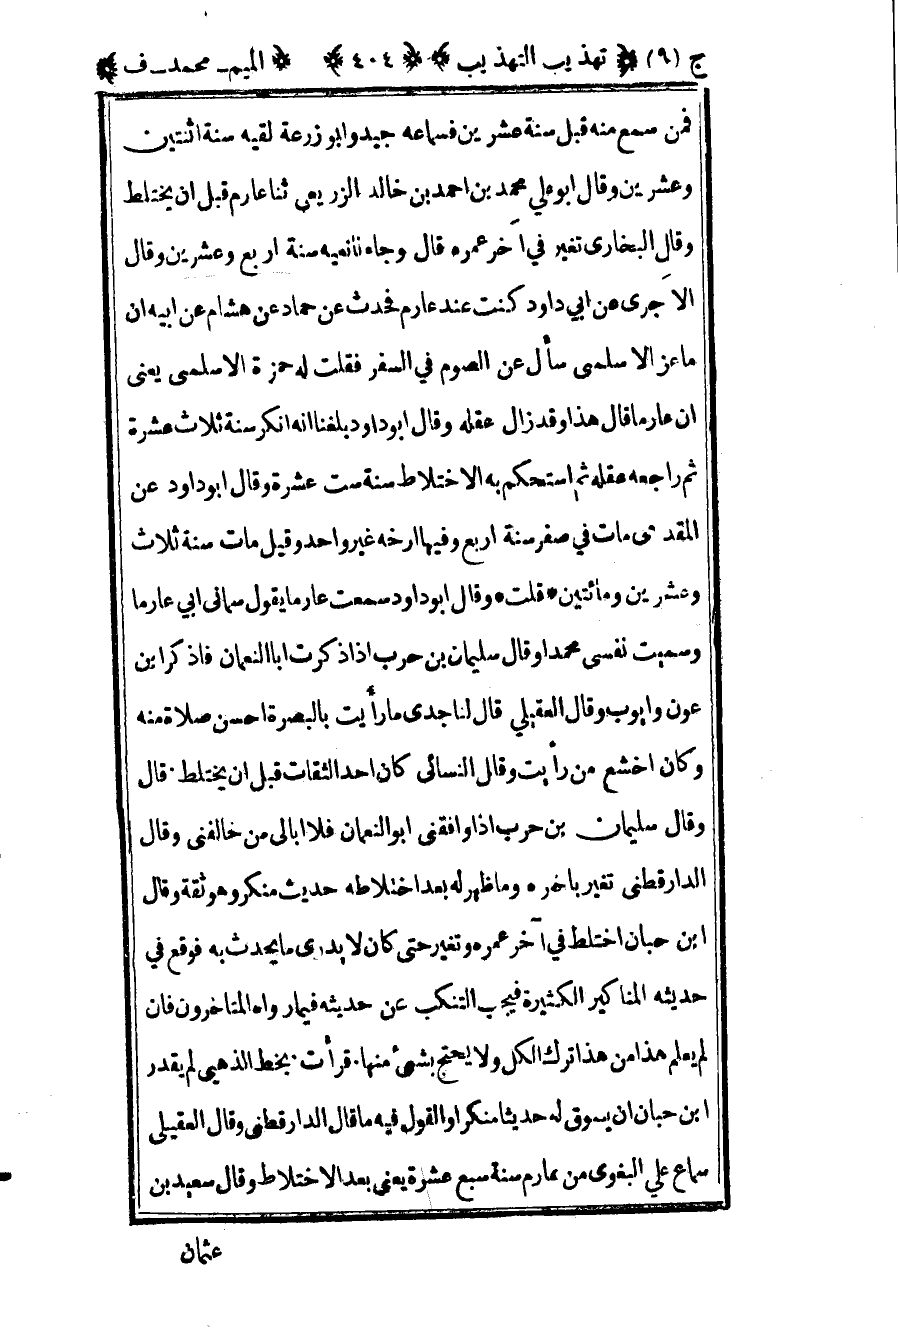 ج (٩) ﴿ تهذيب التهذيب ﴾ ﴿ ٤٠٤ ﴾ ﴿ الميم - محمد - ف ﴾
فمن سمع منه قبل سنة عشرين فسماعه جيد وابو زرعة لقيه سنة اثنتين
وعشرين وقال ابو علي محمد بن احمد بن خالد الزريعي ثنا عارم قبل ان يختلط
وقال البخارى تغير في آخر عمره قال وجاءنا نعيه سنة اربع وعشرين وقال
الآجرى عن ابي داود كنت عند عارم فحدث عن حماد عن هشام عن ابيه ان
ماعز الاسلمى سأل عن الصوم في السفر فقلت له حمزة الاسلمى يعنى
ان عارما قال هذا وقد زال عقله وقال ابو داود بلغنا انه انكر سنة ثلاث عشرة
ثم راجعه عقله ثم استحكم به الاختلاط سنة ست عشرة وقال ابو داود عن
المقدمى مات في صفر سنة اربع وفيها ارخه غير واحد وقيل مات سنة ثلاث
وعشرين ومائتين * قلت * وقال ابو داود سمعت عارما يقول سمانى ابي عارما
وسميت نفسى محمدا وقال سليمان بن حرب اذا ذكرت ابا النعمان فاذكر ابن
عون وايوب وقال العقيلي قال لنا جدى ما رأيت بالبصرة احسن صلاة منه
وكان اخشع من رأيت وقال النسائى كان احد الثقات قبل ان يختلط . قال
وقال سليمان بن حرب اذا وافقنى ابو النعمان فلا ابالى من خالفنى وقال
الدارقطنى تغير باخره وما ظهر له بعد اختلاطه حديث منكر وهو ثقة وقال
ابن حبان اختلط في آخر عمره وتغير حتى كان لا يدرى ما يحدث به فوقع في
حديثه المناكير الكثيرة فيجب التنكب عن حديثه فيما رواه المتاخرون فان
لم يعلم هذا من هذا ترك الكل ولا يحتج بشئ منها . قرأت . بخط الذهبي لم يقدر
ابن حبان ان يسوق له حديثا منكرا والقول فيه ما قال الدارقطني وقال العقيلي
سماع علي البغوى من عارم سنة سبع عشرة يعنى بعد الاختلاط وقال سعيد بن
عثمان